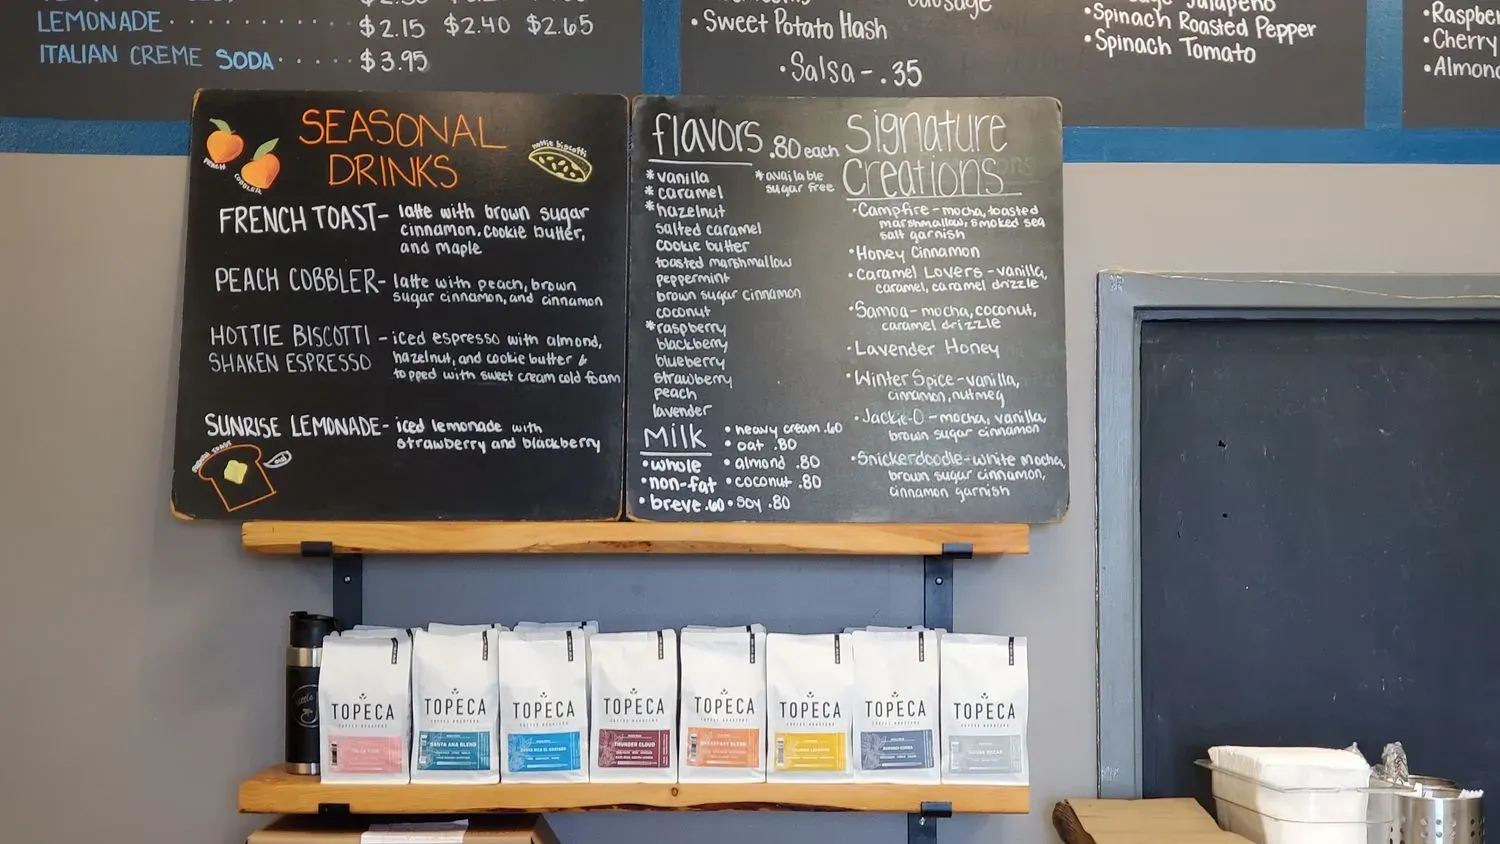 LEMONADE · · · · · · · · · · $2.15 $2.40 $2.65
ITALIAN CREME SODA · · · · · $3.95
Sausage
• Sweet Potato Hash
• Salsa - .35
Jalapeño
• Spinach Roasted Pepper
• Spinach Tomato
• Cherry
SEASONAL
DRINKS
PEACH
COBBLER
hottie biscotti
FRENCH TOAST- latte with brown sugar
cinnamon, cookie butter,
and maple
PEACH COBBLER- latte with peach, brown
sugar cinnamon, and cinnamon
HOTTIE BISCOTTI - iced espresso with almond,
SHAKEN ESPRESSO hazelnut, and cookie butter &
topped with sweet cream cold foam
SUNRISE LEMONADE- iced lemonade with
strawberry and blackberry
flavors .80 each
* available
sugar free
* vanilla
* caramel
* hazelnut
salted caramel
cookie butter
toasted marshmallow
peppermint
brown sugar cinnamon
coconut
* raspberry
blackberry
blueberry
strawberry
peach
lavender
Milk
• whole
• non-fat
• breve .60
• heavy cream .60
• oat .80
• almond .80
• coconut .80
• soy .80
Signature
Creations
• Campfire - mocha, toasted
marshmallow, smoked sea
salt garnish
• Honey Cinnamon
• Caramel Lovers - vanilla,
caramel, caramel drizzle
• Samoa - mocha, coconut,
caramel drizzle
• Lavender Honey
• Winter Spice - vanilla,
cinnamon, nutmeg
• Jackie-O - mocha, vanilla,
brown sugar cinnamon
• Snickerdoodle - white mocha,
brown sugar cinnamon,
cinnamon garnish
TOPECA
COFFEE ROASTERS
TOPECA
COFFEE ROASTERS
SANTA ANA BLEND
TOPECA
COFFEE ROASTERS
TOPECA
COFFEE ROASTERS
THUNDER CLOUD
TOPECA
COFFEE ROASTERS
BREAKFAST BLEND
TOPECA
COFFEE ROASTERS
TOPECA
COFFEE ROASTERS
TOPECA
COFFEE ROASTERS